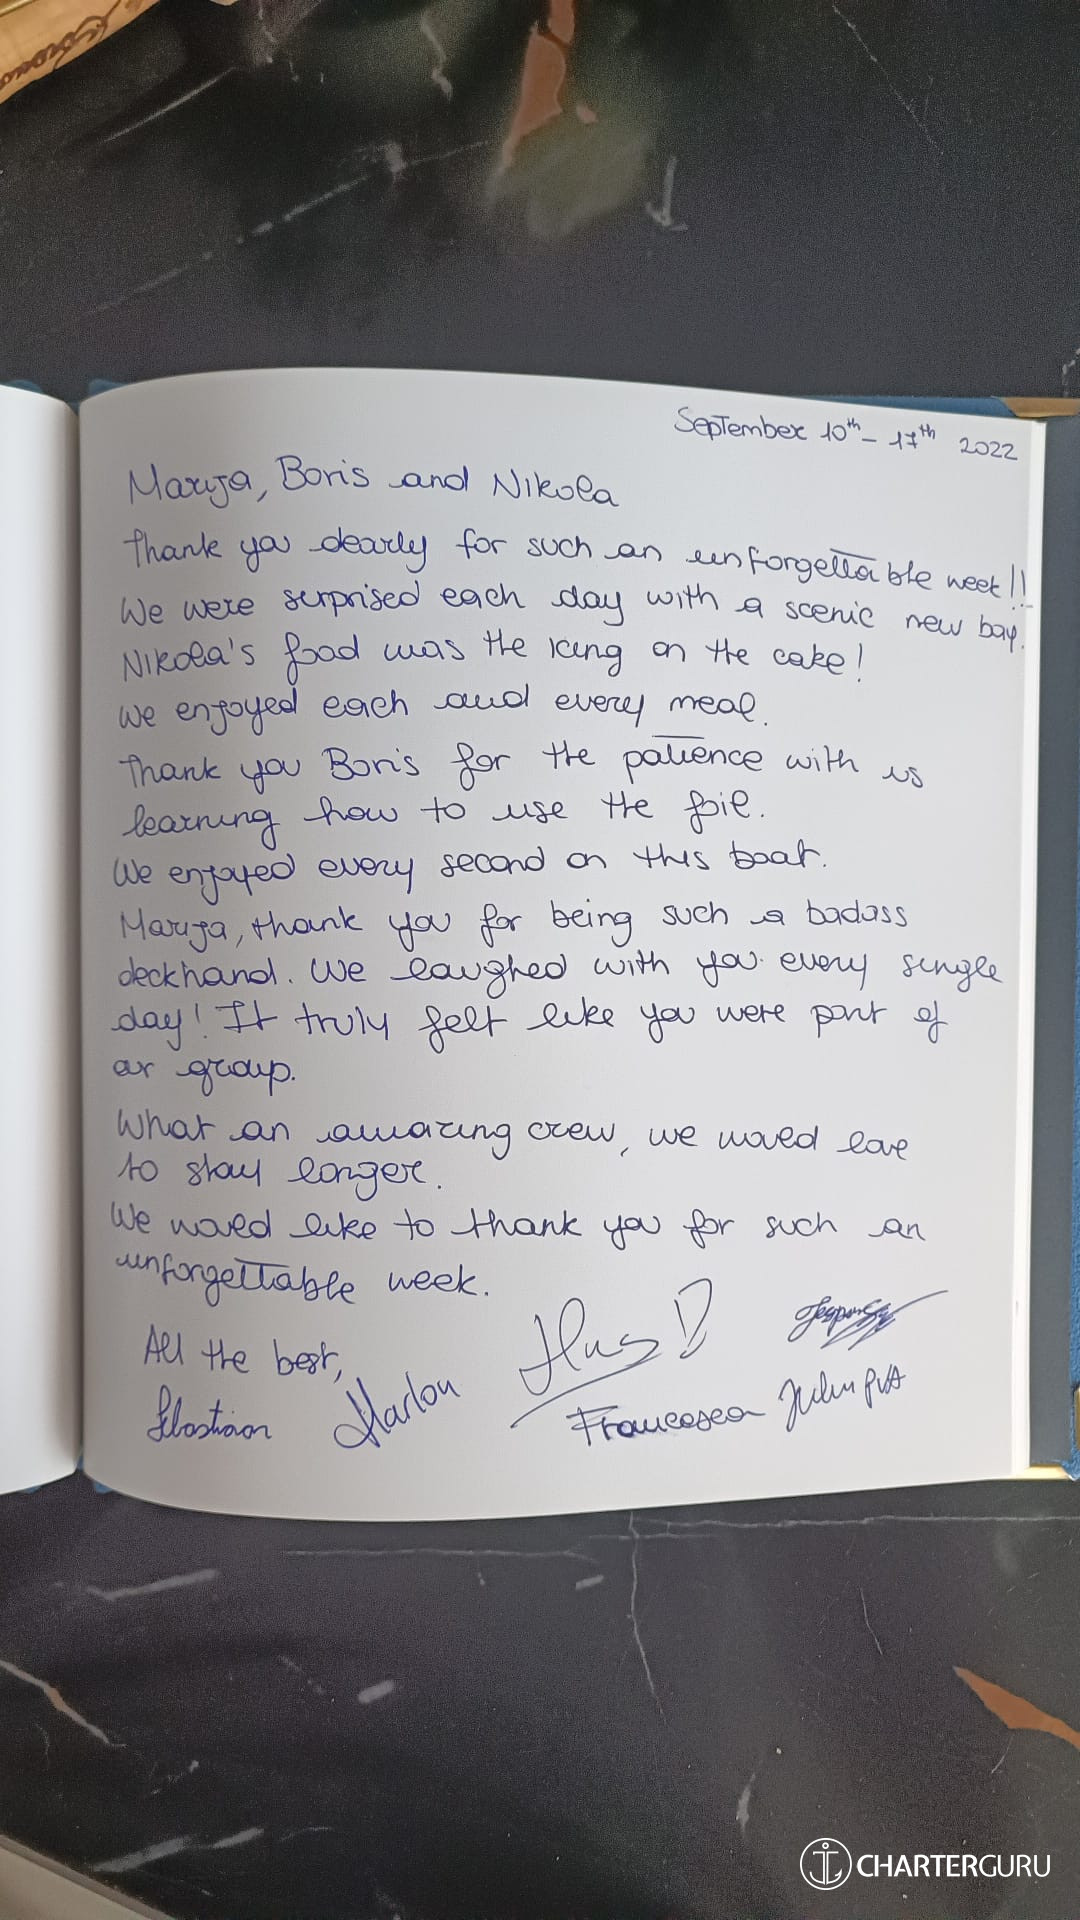 September 10th - 17th 2022
Marija, Boris and Nikola
Thank you dearly for such an unforgettable week!!
We were surprised each day with a scenic new bay.
Nikola's food was the icing on the cake!
We enjoyed each and every meal.
Thank you Boris for the patience with us
learning how to use the foil.
We enjoyed every second on this boat.
Marija, thank you for being such a badass
deckhand. We laughed with you every single
day! It truly felt like you were part of
our group.
What an amazing crew, we would love
to stay longer.
We would like to thank you for such an
unforgettable week.
All the best,
Sebastiaan Marlou Francesca
CHARTERGURU